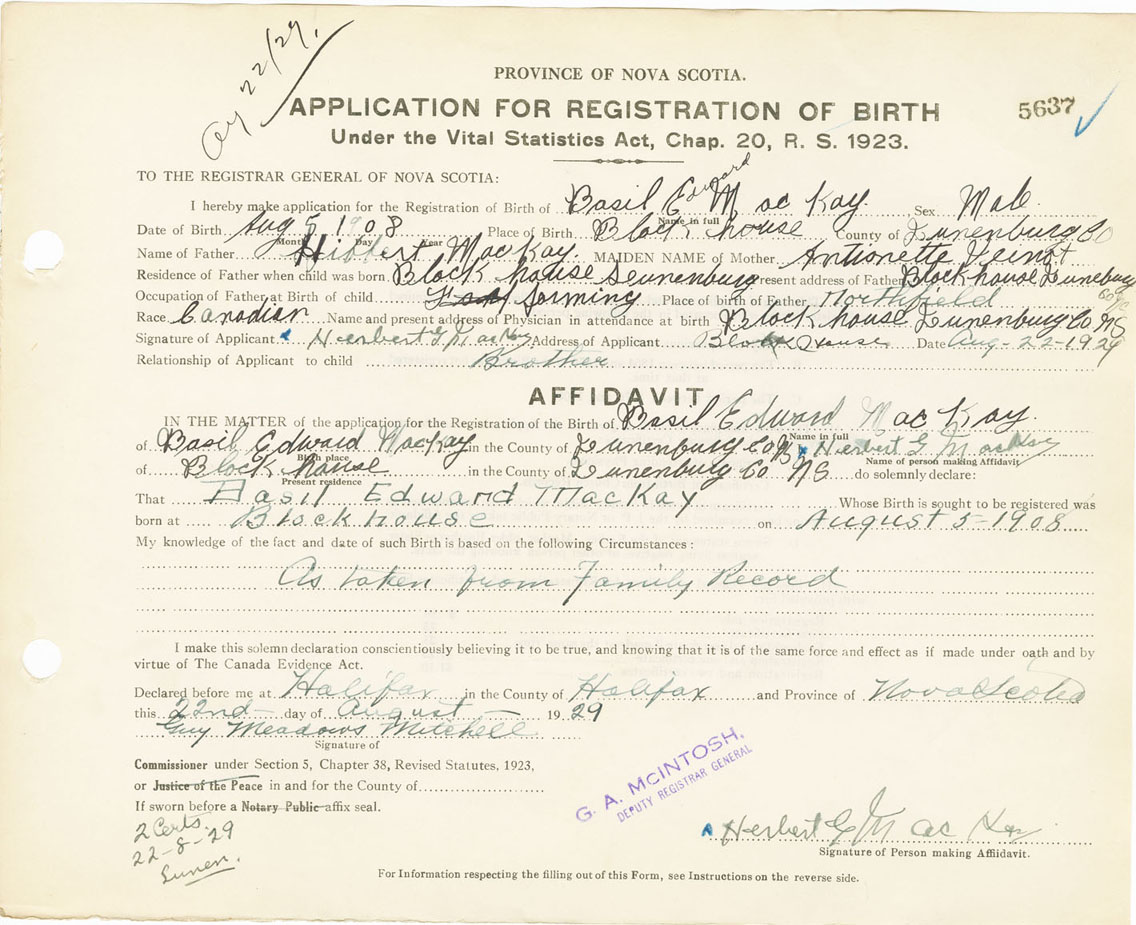 Ag 22/29.
PROVINCE OF NOVA SCOTIA.
APPLICATION FOR REGISTRATION OF BIRTH
5637
Under the Vital Statistics Act, Chap. 20, R. S. 1923.
TO THE REGISTRAR GENERAL OF NOVA SCOTIA:
I hereby make application for the Registration of Birth of Basil Edward MacKay Sex Male
Name in full
Date of Birth Aug 5 1908 Place of Birth Block house County of Lunenburg Co
Month Day Year
Name of Father Hibbert MacKay. MAIDEN NAME of Mother Antionette
Residence of Father when child was born Block house Lunenburg Present address of Father Block house Luneburg
Occupation of Father at Birth of child farming Place of birth of Father Northfield
Race Canadian Name and present address of Physician in attendance at birth Block house Lunenburg Co NS
Signature of Applicant Herbert G MacKay Address of Applicant Block House Date Aug-22-1929
Relationship of Applicant to child Brother
AFFIDAVIT
IN THE MATTER of the application for the Registration of the Birth of Basil Edward MacKay.
Name in full
of Basil Edward MacKay in the County of Lunenburg Co Herbert G MacKay
Birth place
Name of person making Affidavit
of Block house in the County of Lunenburg Co NS do solemnly declare:
Present residence
That Basil Edward MacKay Whose Birth is sought to be registered was
born at Blockhouse on August 5-1908
My knowledge of the fact and date of such Birth is based on the following Circumstances:
As taken from Family Record
I make this solemn declaration conscientiously believing it to be true, and knowing that it is of the same force and effect as if made under oath and by
virtue of The Canada Evidence Act.
Declared before me at Halifax in the County of Halifax and Province of Nova Scotia
this 22nd day of August 1929
Guy Meadows Mitchell
Signature of
Commissioner under Section 5, Chapter 38, Revised Statutes, 1923,
or Justice of the Peace in and for the County of
If sworn before a Notary Public affix seal.
G. A. McINTOSH,
DEPUTY REGISTRAR GENERAL
2 Certs.
22-8-29
Lunen.
Herbert G MacKay
Signature of Person making Affidavit.
For Information respecting the filling out of this Form, see Instructions on the reverse side.